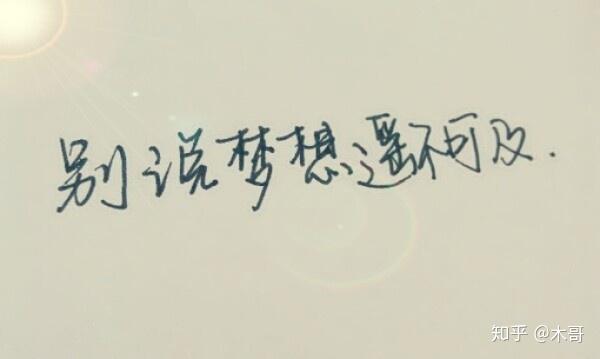 别说梦想遥不可及.
知乎 @木哥